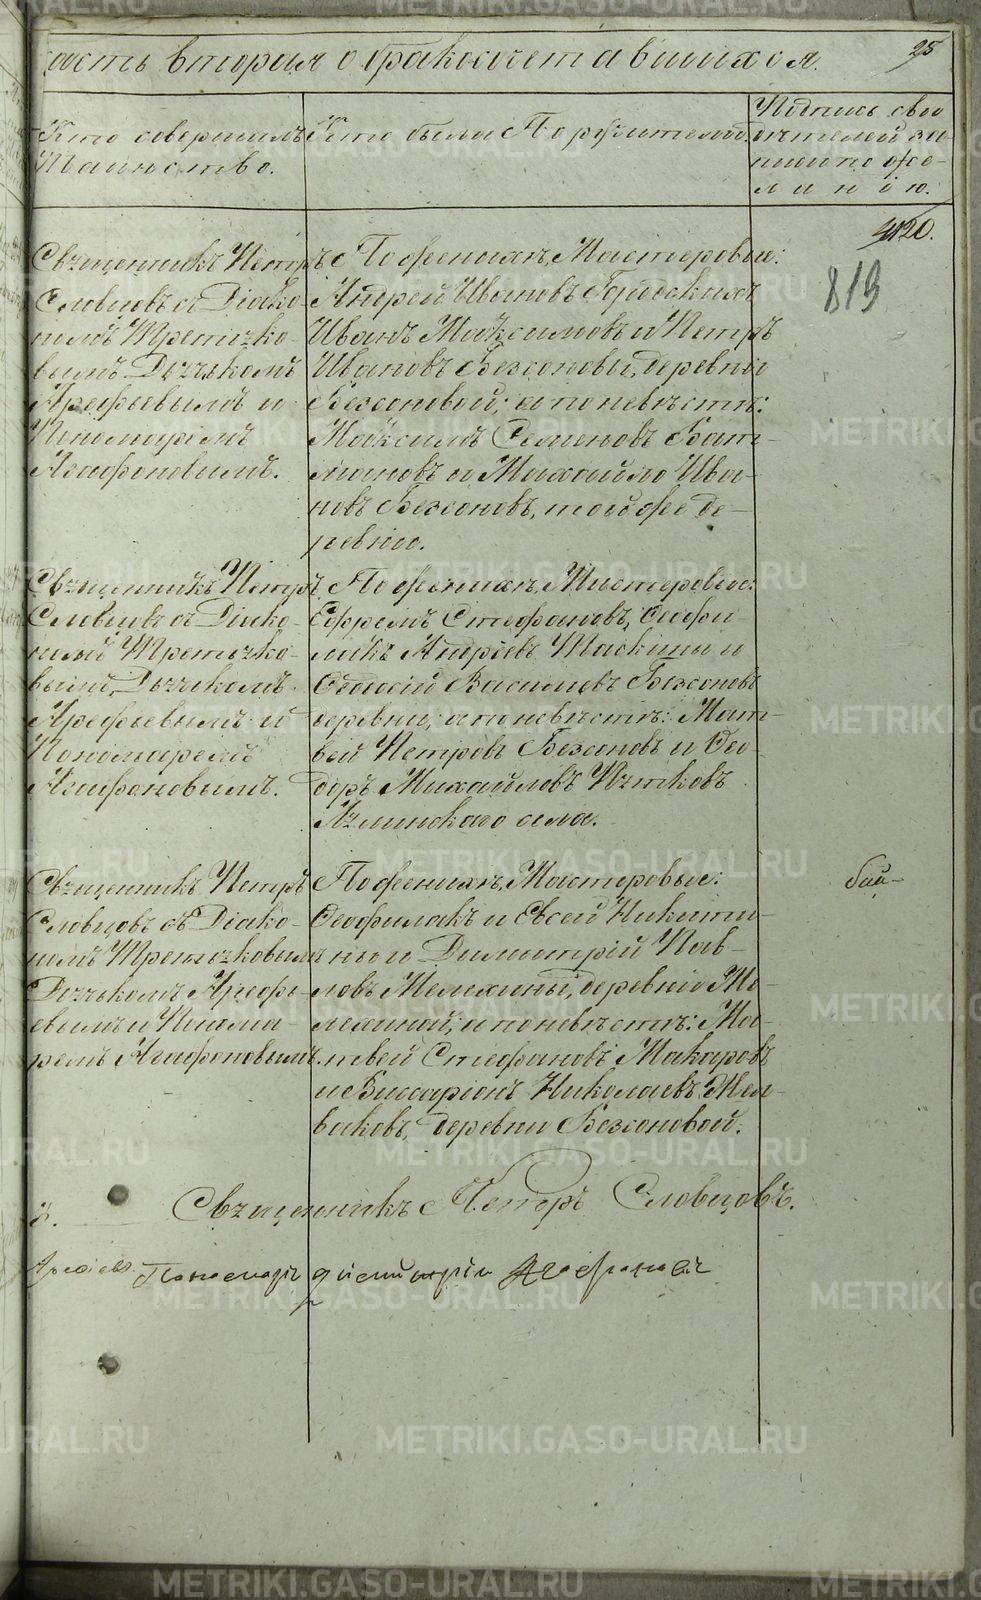 часть вторая о бракосочетавшихся.
25
Кто совершилъ
Таинство.
Кто были Поручители.
Подпись сви
дѣтелей за-
писи по же-
ланію.
420.
819
Священникъ Петръ
Словцовъ съ Діако-
номъ Третьяко-
вымъ Дьячкомъ
Арефьевымъ и
Пономаремъ
Агафоновымъ.
По женихѣ, Мастеровые:
Андрей Ивановъ
Иванъ Максимовъ и Петръ
Ивановъ Безсоновы, деревни
Безсоновой; а по невѣстѣ:
Максимъ Семеновъ Бат-
мановъ и Михайло Ива-
новъ Безсоновъ, той же де-
ревни.
Священникъ Петръ
Словцовъ съ Діако-
номъ Третьяко-
вымъ, Дьячкомъ
Арефьевымъ и
Пономаремъ
Агафоновымъ.
По женихѣ, Мастеровые:
Ефремъ Стефановъ, Феофи-
лактъ Андреевъ Таскины и
Феодосій Васильевъ Безсоновъ
деревни; а по невѣстѣ: Мат-
вей Петровъ Безсоновъ и Фео-
доръ Михайловъ Пятковъ
села.
Священникъ Петръ
Словцовъ съ Діако-
номъ Третьяковымъ
Дьячкомъ Арефь-
евымъ и Понома-
ремъ Агафоновымъ.
По женихѣ, Мастеровые:
Феофилактъ и Евсей Никити-
ны и Димитрій Пав-
ловъ Мелехины, деревни Ме-
лехиной, а по невѣстѣ: Ма-
твей Стефановъ Макаровъ
и Виссаріонъ Николаевъ
деревни Безсоновой.
Священникъ Петръ Словцовъ.
Арефьевъ. Пономарь Димитрій Агафоновъ
METRIKI.GASO-URAL.RU